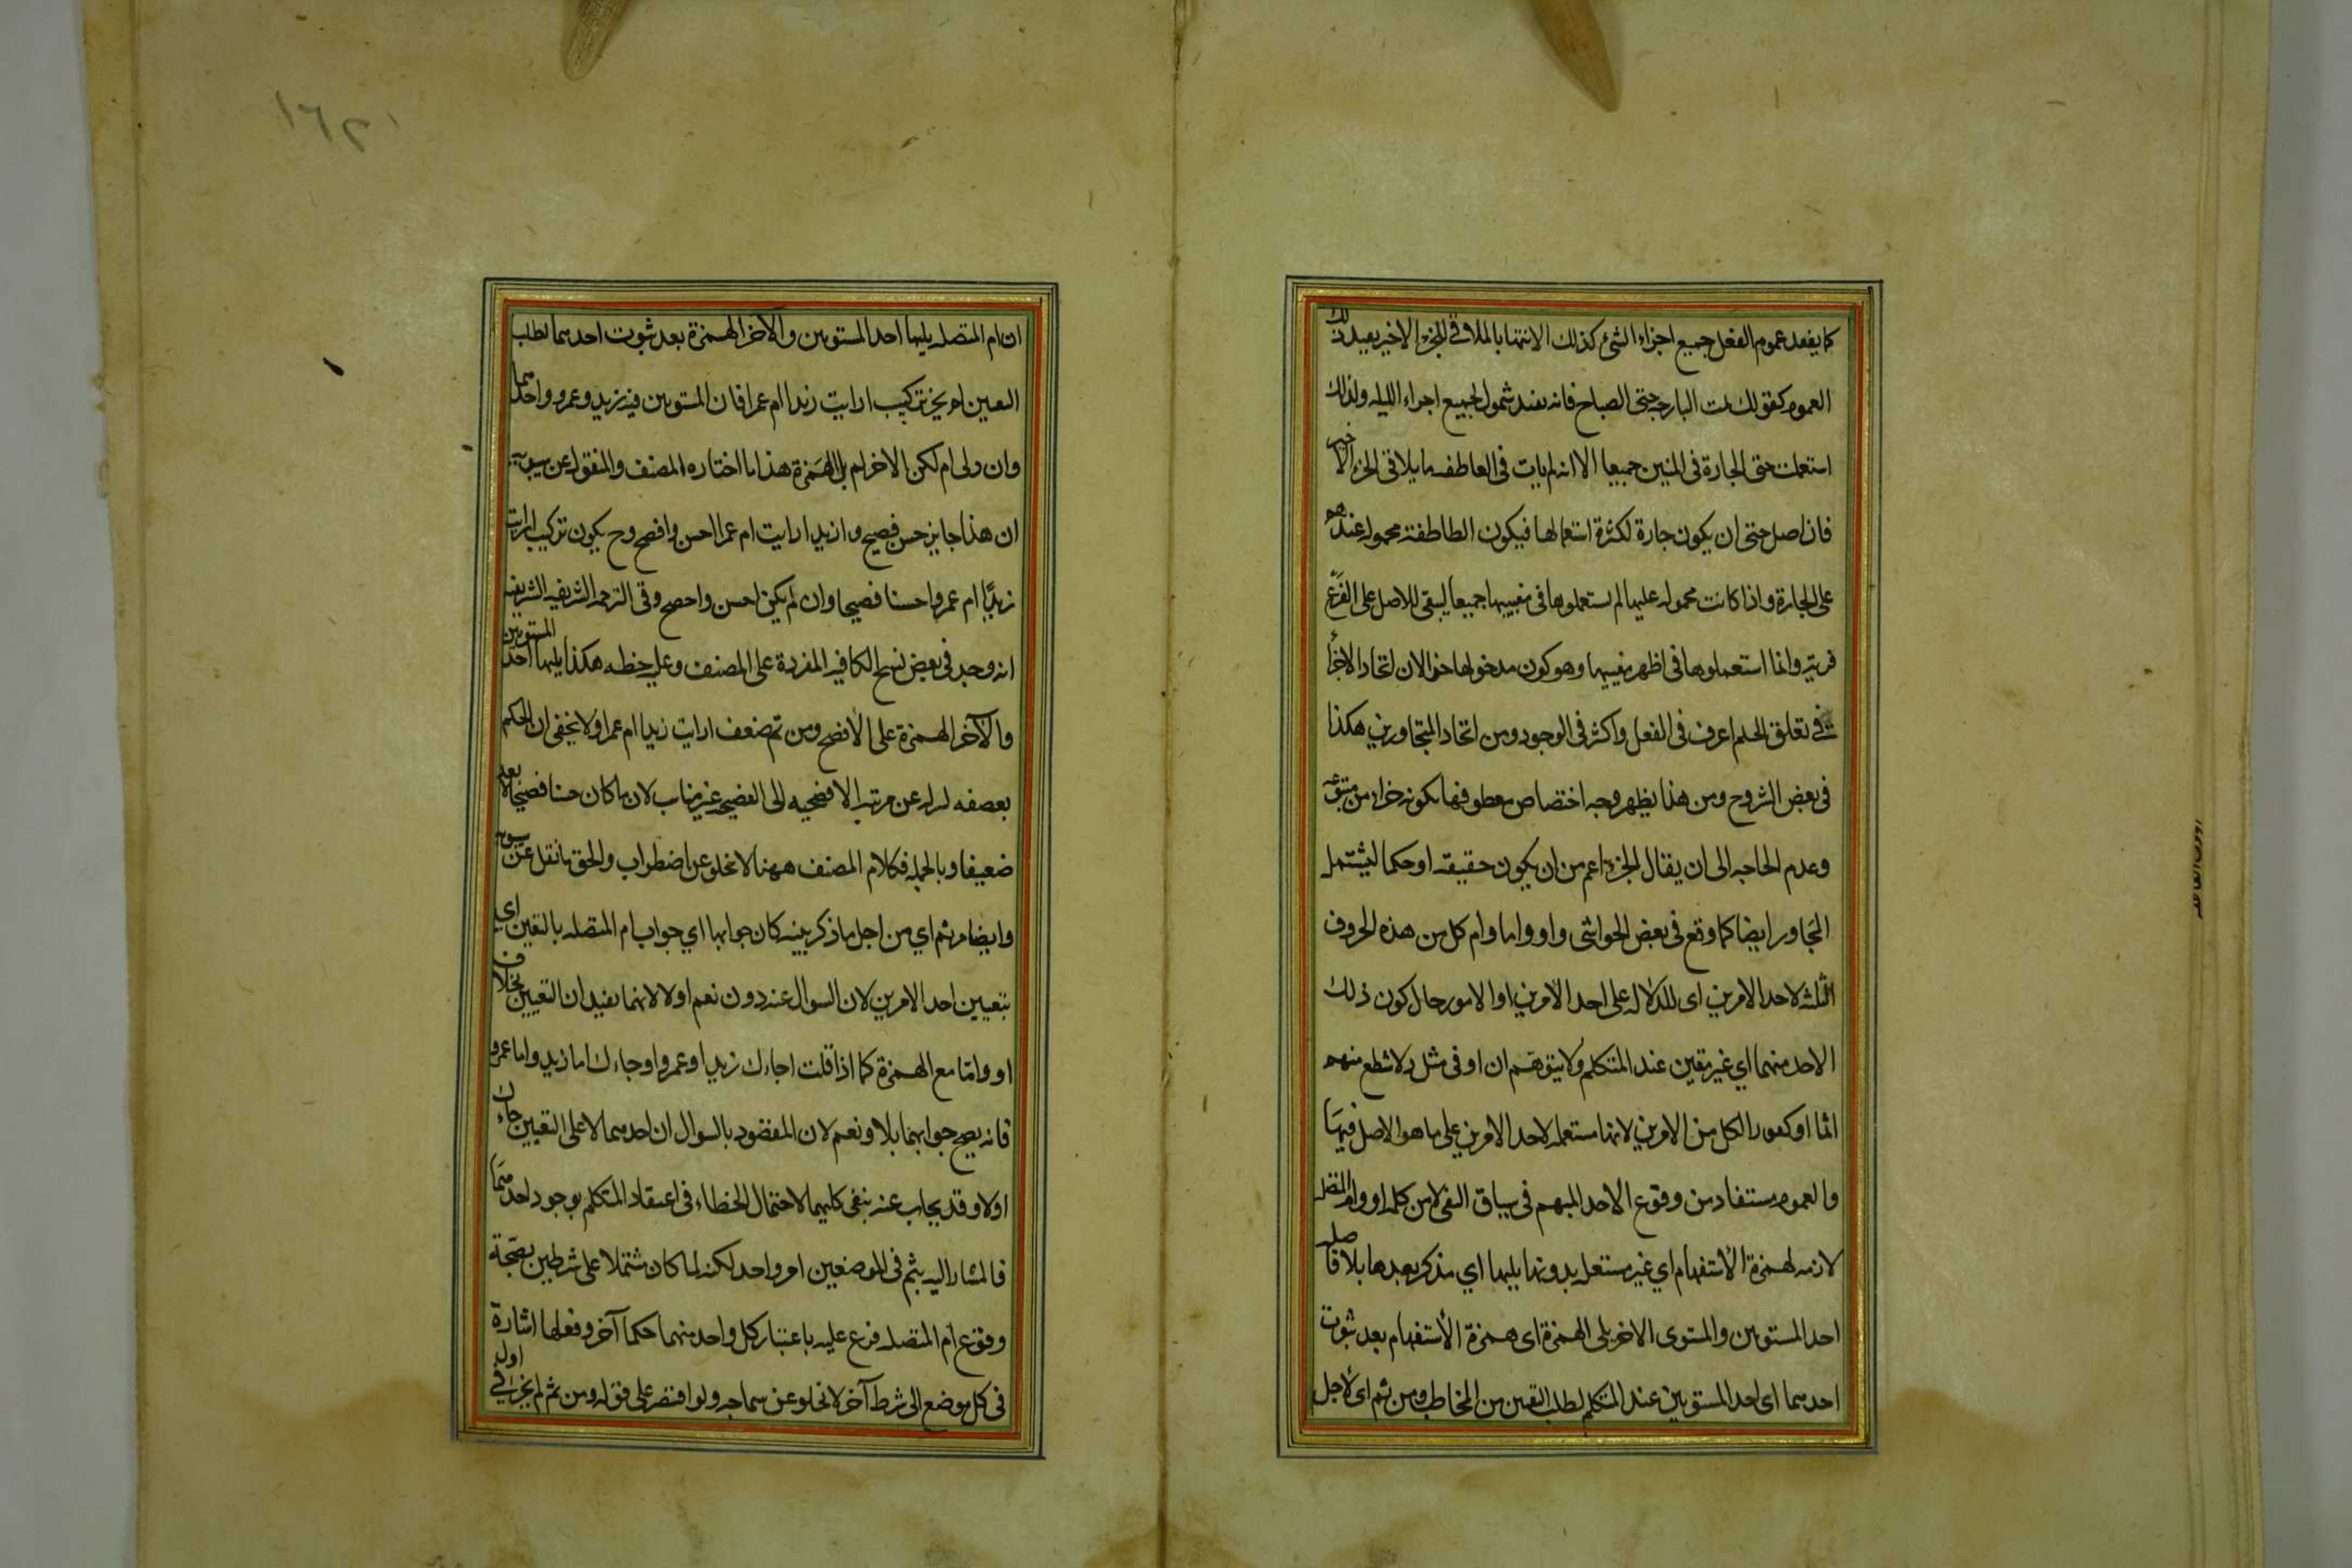 كما يفيد عموم الفعل جميع اجزاء الشئ كذلك الانتها بالملاقي للجزء الاخير يفيد ذلك
العموم كقولك نمت البارحه حتى الصباح فانه يفيد شمول لجميع اجزاء الليله ولذلك
استعملت حتى الجارة في المعنيين جميعا الا انه لم يات في العاطفه ما يلاقي الجزء الاخير
فان اصل حتى ان يكون جارة لكثرة استعمالها فيكون الطاطفة محموله عندهم
على الجارة واذا كانت محموله عليها لم يستعملوها في معنييها جميعا ليبقى للاصل على الفرع
مزية وانما استعملوها في اظهر معنييها وهو كون مدخولها جزا لان اتحاد الاجزأ
في تعلق الحكم اعرف في الفعل واكثر في الوجود من اتحاد المتجاورين هكذا
في بعض الشروح ومن هذا يظهر وجه اختصاص معطوفها بكونه جزاء من متبوعه
وعدم الحاجه الى ان يقال الجزء اعم من ان يكون حقيقته او حكما ليشتمل
المجاور ايضا كما وقع في بعض الحواشى واو واما وام كل من هذه الحروف
الثلثه لاحد الامرين اى للدلاله على احد الامرين او الامور حال كون ذلك
الاحد منهما اي غير متعين عند المتكلم ولا يتوهم ان او في مثل ولا تطع منهم
اثما او كفورا لكل من الامرين لانها مستعمله لاحد الامرين على ما هو الاصل فيها
والعموم مستفاد من وقوع الاحد المبهم في سياق النفي لا من كلمه او وام المتصله
لازمه لهمزة الأستفهام اي غير مستعمله بدونها يليها اي يذكر بعدها بلا فاصله
احد المستويين والمستوى الاخر يلى الهمزة اى همزة الأستفهام بعد ثبوت
احدهما اى احد المستويين عند المتكلم لطلب التعيين من المخاطب ومن ثم اى لاجل
١٦٢
ان ام المتصله يليها احد المستويين والاخر الهمزة بعد ثبوت احدهما لطلب
التعيين لم يجز تركيب ارايت زيدا ام عمرا فان المستويين فيه زيد وعمرو واحدهما
وان ولى ام لكن الاخر لم يل الهمزة هذا ما اختاره المصنف والمنقول عن سيبويه
ان هذا جايز حسن فصيح و ازيدا رايت ام عمرا احسن وافصح وح يكون تركيب ارايت
زيدًا ام عمروا حسنا فصيحا وان لم يكن احسن وافصح وفي الترجمه الشريفه الشريفيه
انه وجد في بعض نسخ الكافيه المقروة على المصنف وعليه خطه هكذا يليها احد المستويين
والآخر الهمزة على الافصح ومن ثم ضعف ارايت زيدا ام عمرا ولا يخفى ان الحكم
بضعفه لنزوله عن مرتبه الافصحيه الى الفصيح غير مناسب لان ما كان حسنا فصيحا لا يعد
ضعيفا وبالجمله فكلام المصنف ههنا لا يخلو عن اضطراب والحق ما نقل عن سيبويه
وايضا من ثم اي من اجل ما ذكر بعينه كان جوابها اي جواب ام المتصله بالتعيين اي
بتعيين احد الامرين لان السوال عنه دون نعم او لا لانهما لا يفيدان التعيين بخلاف
او وامّا مع الهمزة كما اذا قلت اجاءك زيد او عمرو او جاءك اما زيد واما عمرو
فانه يصح جوابهما بلا او نعم لان المقصود بالسوال ان احدهما لا على التعيين جاءك
اولا وقد يجاب عنه بنفي كليهما لاحتمال الخطاء في اعتقاد المتكلم بوجود احدهما
فالمشار اليه بثم في الموضعين امر واحد لكنه لما كان مشتملا على شرطين بصحة
وقوع ام المتصله فرع عليه باعتبار كل واحد منهما حكما آخر وفعلها اشارة
في كل موضع الى شرط آخر لا يخلو عن سماجه ولو اقتصر على قوله ومن ثم لم يجز في اول